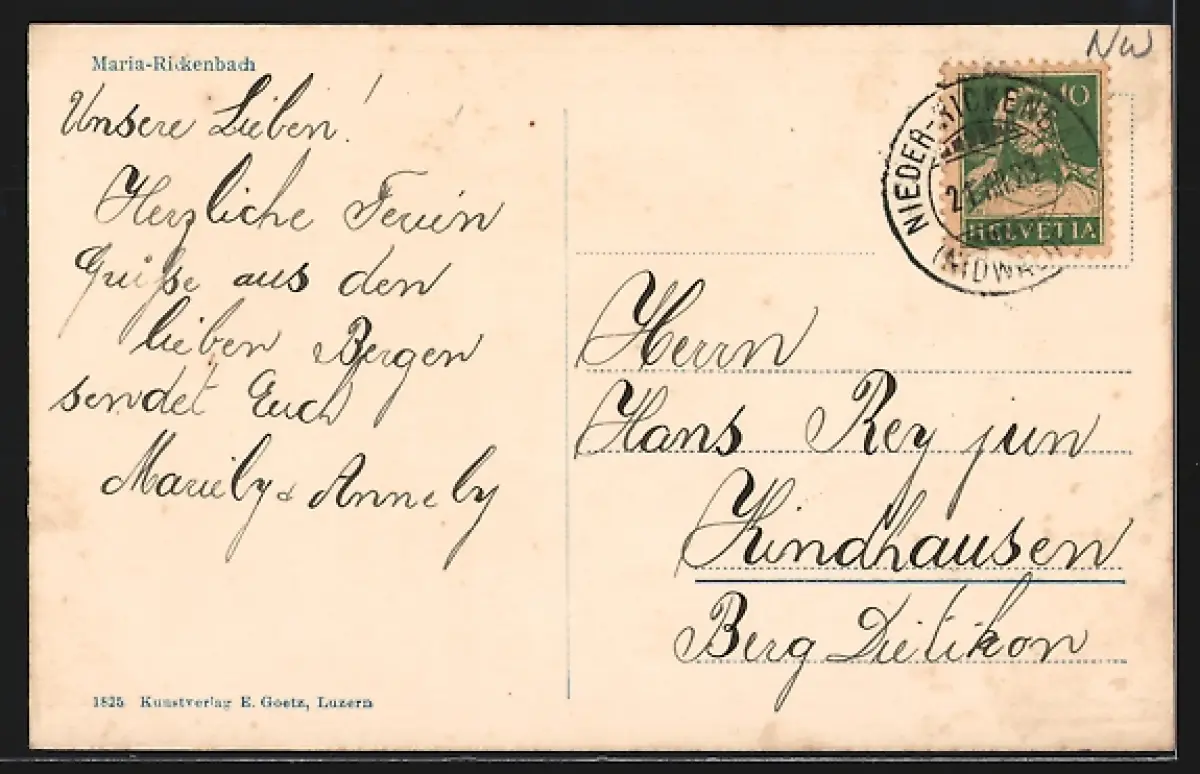 Maria-Rickenbach
Unsere Lieben!
Herzliche Ferien
Grüsse aus den
lieben Bergen
sendet Euch
Mariely & Annely
1825 Kunstverlag E. Goetz, Luzern
NW
10
HELVETIA
NIEDER-RICKENB
(NIDWALD
Herrn
Hans Rey jun
Kindhausen
Berg Dietikon